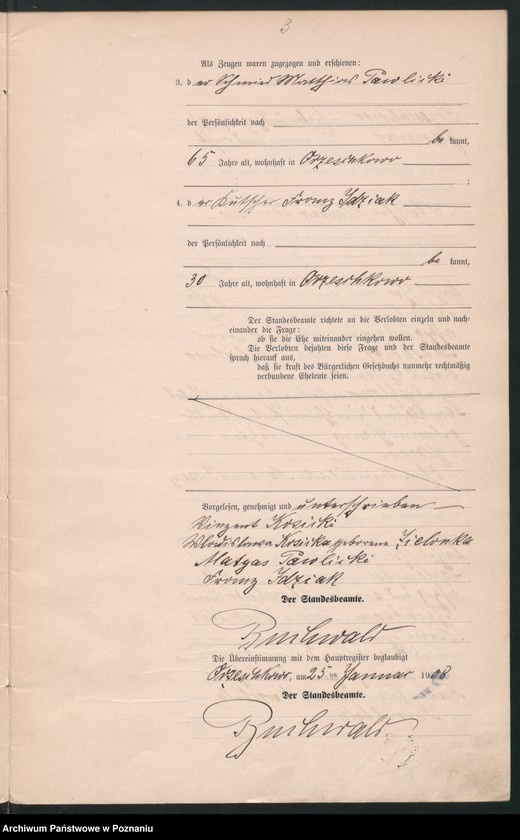 3
Als Zeugen waren zugezogen und erschienen:
3. der Schmied Matthias Pawlicki
der Persönlichkeit nach
be kannt,
65 Jahre alt, wohnhaft in Orzeschkowo
;
4. der Kutscher Franz Idziak
der Persönlichkeit nach
be kannt,
30 Jahre alt, wohnhaft in Orzeschkowo
Der Standesbeamte richtete an die Verlobten einzeln und nach-
einander die Frage:
ob sie die Ehe miteinander eingehen wollen.
Die Verlobten bejahten diese Frage und der Standesbeamte
sprach hierauf aus,
daß sie kraft des Bürgerlichen Gesetzbuchs nunmehr rechtmäßig
verbundene Eheleute seien.
Vorgelesen, genehmigt und unterschrieben
Vinzent Kozicki
Wladislawa Kozicka geborene Zielonka
Matyas Pawlicki
Franz Idziak
Der Standesbeamte.
Buchwald
Die Übereinstimmung mit dem Hauptregister beglaubigt
Orzeschkowo, am 25 ten Januar 1908
Der Standesbeamte.
Buchwald
Archiwum Państwowe w Poznaniu